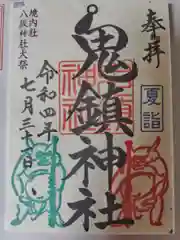 奉拝
夏詣
鬼鎮神社
境内社
八坂神社大祭
令和四年
七月三十一日